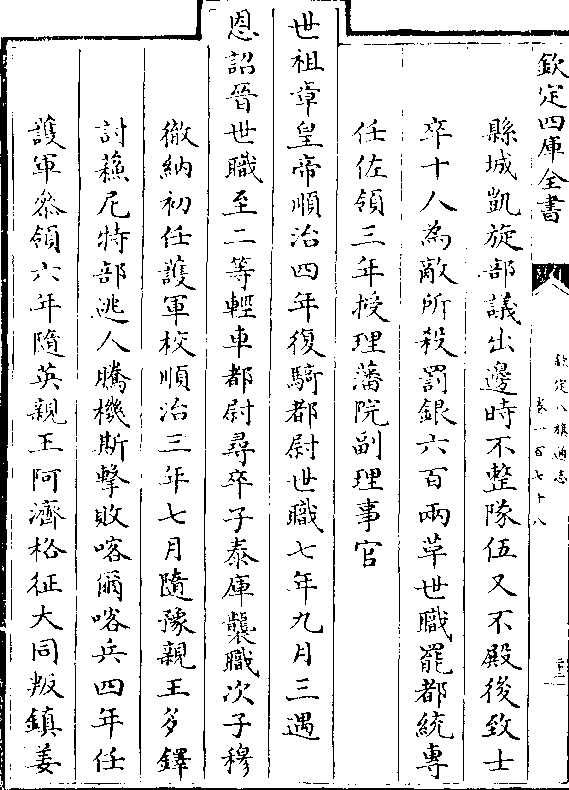 欽定四庫全書
欽定八旗通志
卷一百七十八
縣城凱旋部議出邊時不整隊伍又不殿後致士
卒十人為敵所殺罰銀六百兩革世職罷都統專
任佐領三年授理藩院副理事官
世祖章皇帝順治四年復騎都尉世職七年九月三遇
恩詔晉世職至二等輕車都尉尋卒子泰庫襲職次子穆
徹納初任護軍校順治三年七月隨豫親王多鐸
討蘓尼特部逃人騰機斯擊敗喀爾喀兵四年任
護軍叅領六年隨英親王阿濟格征大同叛鎮姜